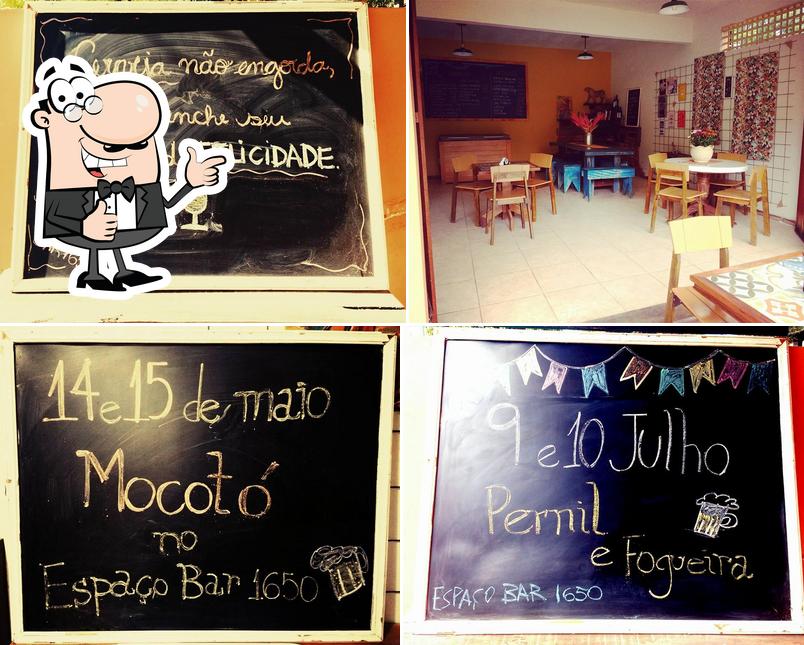 Cerveja não engorda,
enche seu
FELICIDADE.
14 e 15 de maio
Mocotó
no
Espaço Bar 1650
9 e 10 Julho
Pernil
e Fogueira
ESPAÇO BAR 1650